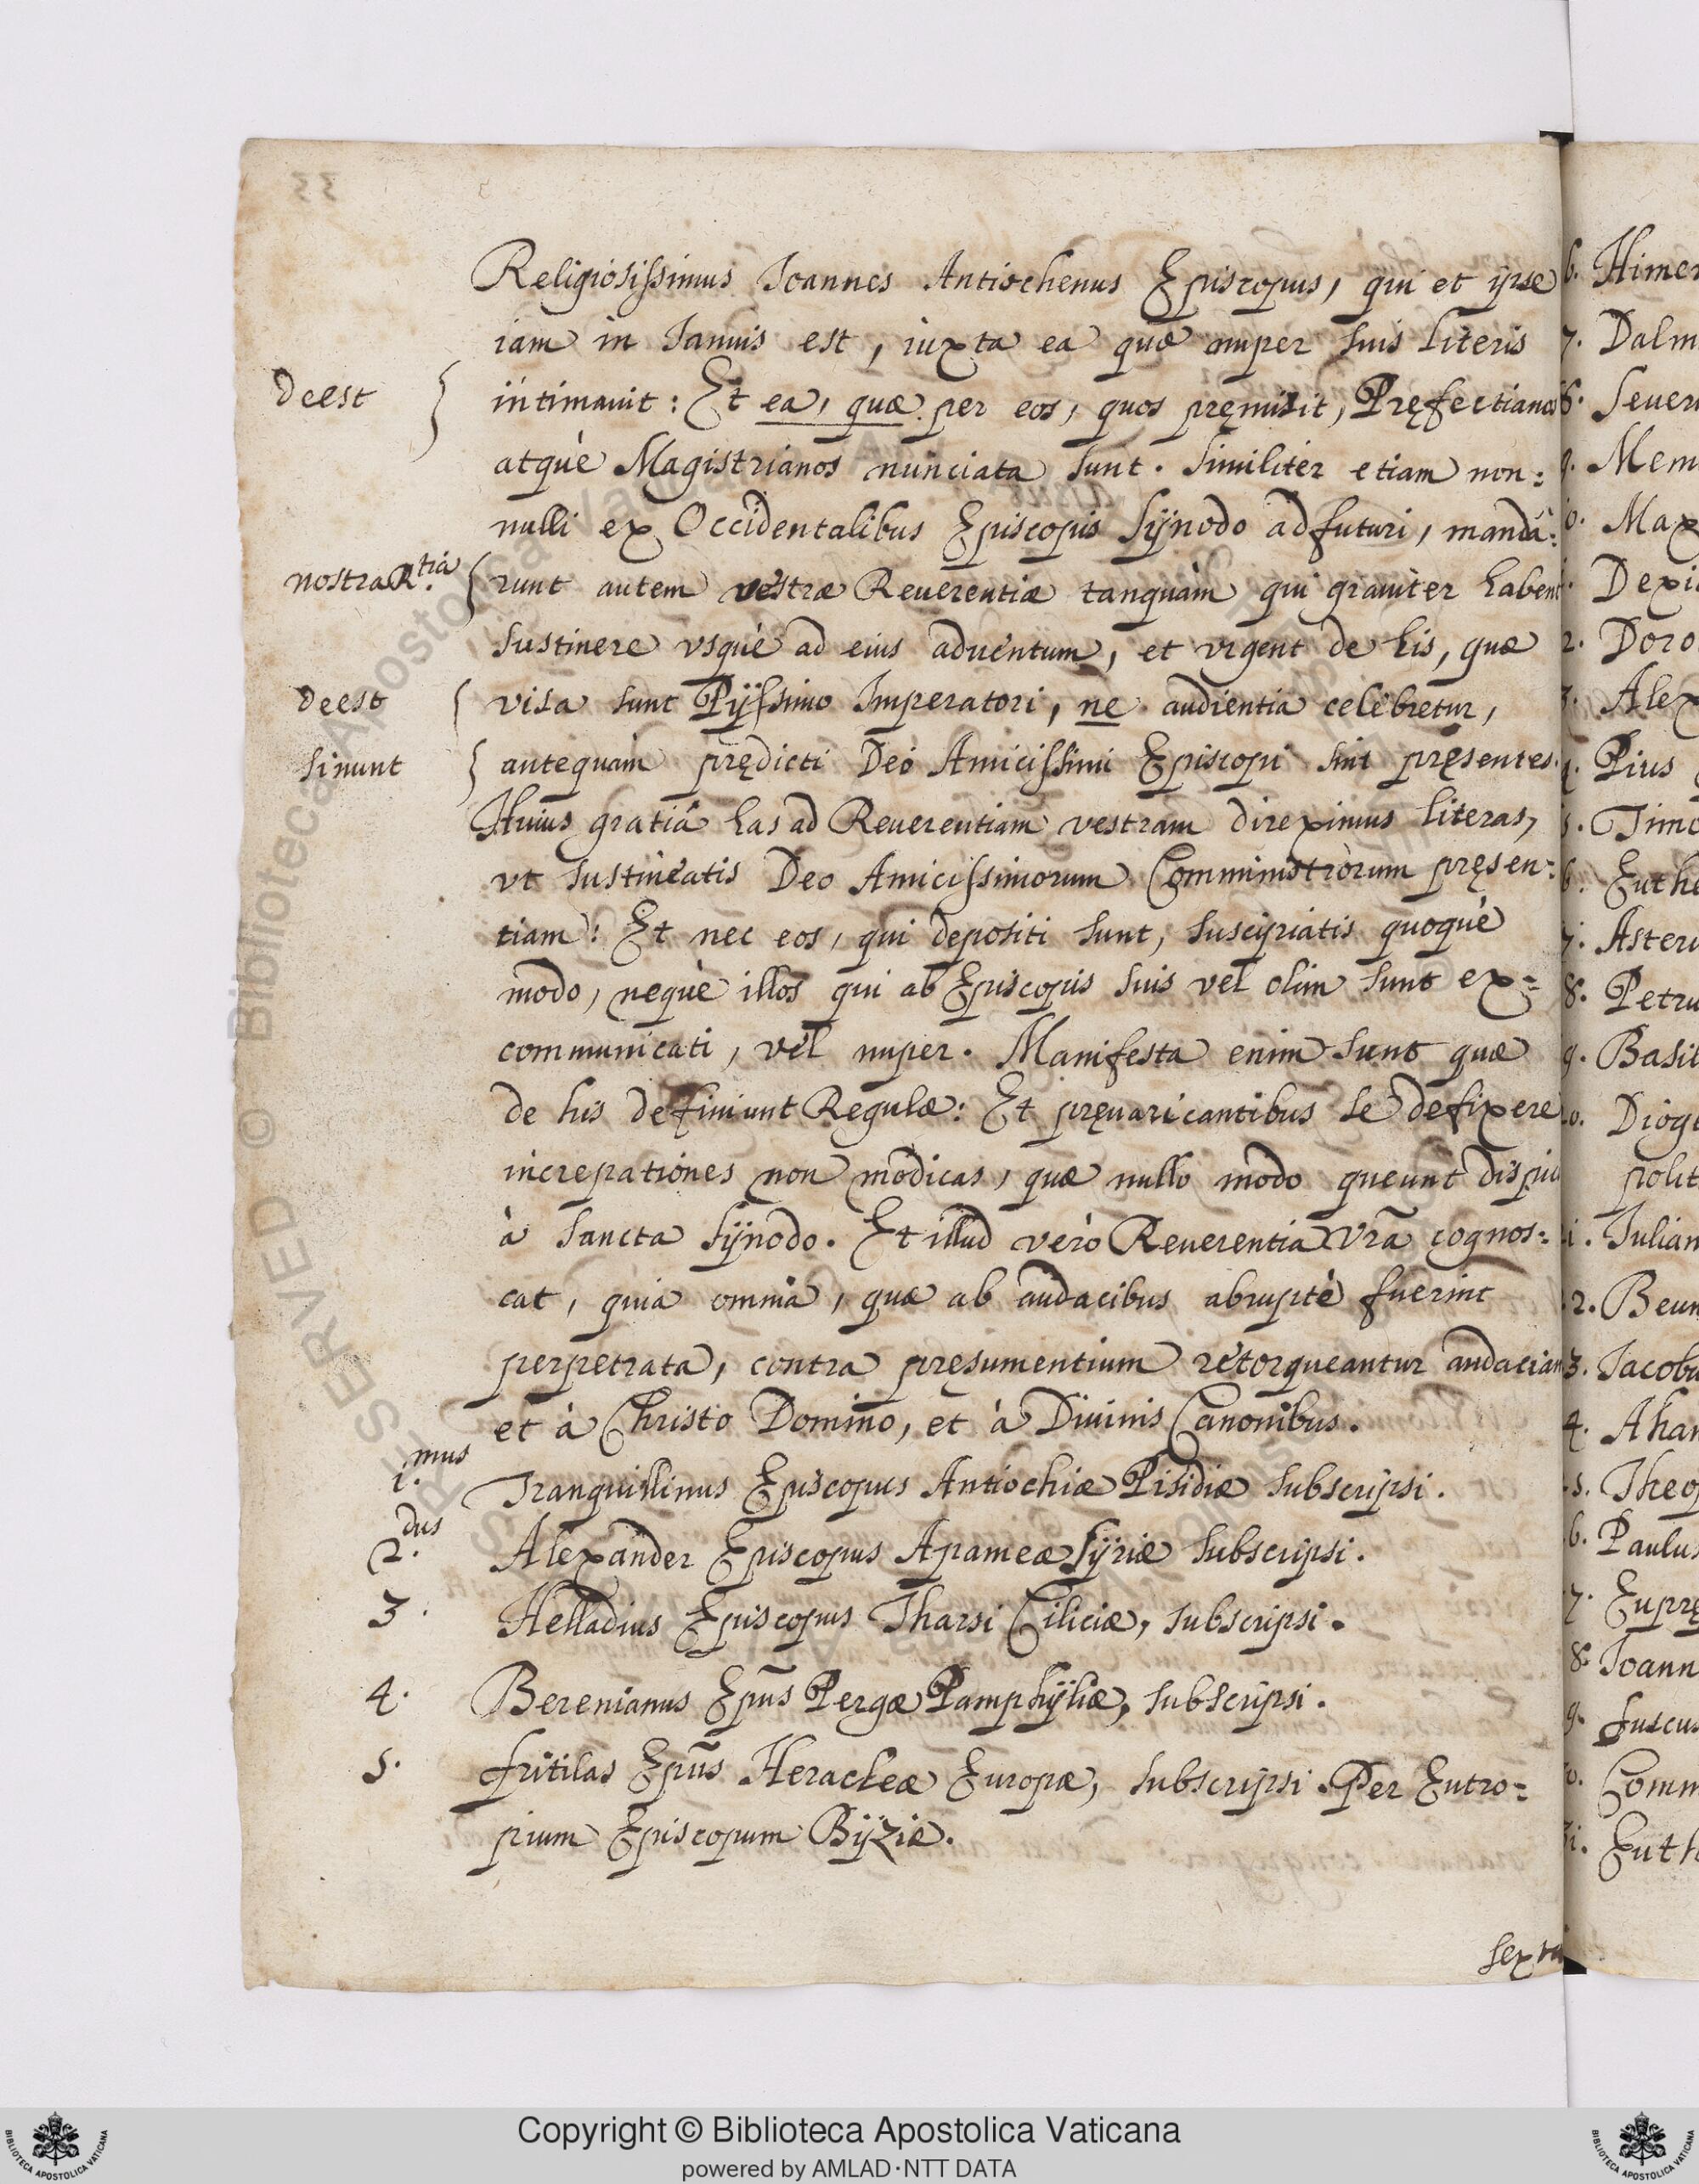 Religiosissimus Ioannes Antiochenus Episcopus, qui et ipse
iam in Ianuis est, iuxta ea quæ nuper suis Literis
Deest
intimauit: Et ea, quæ per eos, quos pręmisit, Pręfectianos
atquè Magistrianos nunciata sunt. Similiter etiam non=
nulli ex Occidentalibus Episcopis Sÿnodo adfuturi, manda=
nostra R.tia
runt autem vestræ Reuerentiæ tanquàm qui grauiter habent
sustinere vsquè ad eius aduentum, et vrgent de his, quæ
Deest
visa sunt Pijssimo Imperatori, ne audientia celebretur,
sinunt
antequàm prędicti Deo Amicissimi Episcopi sint pręsentes.
Huius gratiâ has ad Reuerentiam vestram direximus literas,
vt sustineatis Deo Amicissimorum Comministrorum pręsen=
tiam: Et nec eos, qui depositi sunt, suscipiatis quoquè
modo, nequè illos qui ab Episcopis suis vel olim sunt ex=
communicati, vel nuper. Manifesta enim sunt quæ
de his definiunt Regulæ: Et pręuaricantibus se defixere
increpationes non modicas, quæ nullo modo queunt
à Sancta Sÿnodo. Et illud verò Reuerentia Vrã cognos=
cat, quia omnia, quæ ab audacibus abruptè fuerint
perpetrata, contra pręsumentium retorqueantur audaciam
et à Christo Domino, et à Diuinis Canonibus.
1.mus Tranquillinus Episcopus Antiochiæ Pisidiæ subscripsi.
2.dus Alexander Episcopus Apameæ Sÿriæ subscripsi.
3. Helladius Episcopus Tharsi Ciliciæ, subscripsi.
4. Berenianus Ep̃us Pergæ Pamphÿliæ, subscripsi.
5. fritilas Ep̃us Heracleæ Europæ, subscripsi. Per Eutro=
pium Episcopum Bÿziæ.
6. Himer
7. Dalm
8. Seuer
9. Mem
0. Max
Dexi
2. Doro
3. Alex
4. Pius
5. Timo
6. Euthe
7. Asteri
8. Petru
9. Basil
0. Dioge
polit
1. Iulian
2. Beun
3. Iacobu
4. Ahan
5. Theop
6. Paulus
7. Euprę
8. Ioann
9. fuscus
0. Comm
1. Euth
Copyright © Biblioteca Apostolica Vaticana
powered by AMLAD·NTT DATA